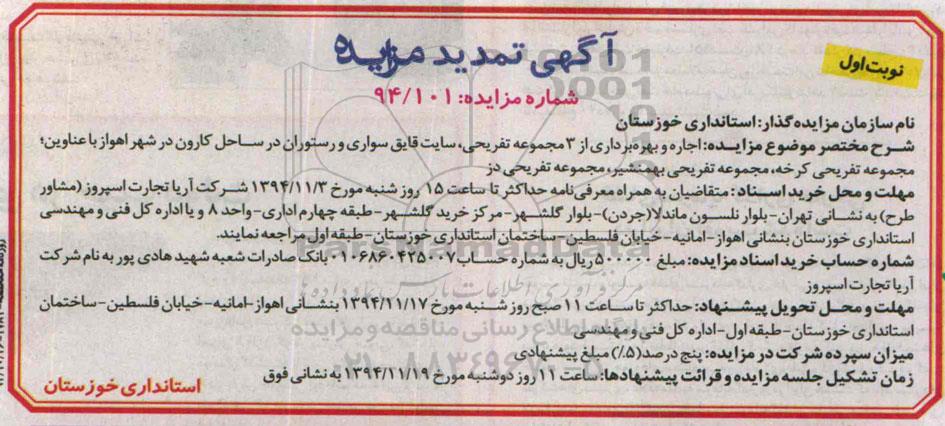 آگهی تمدید مزایده
نوبت اول
شماره مزایده: ۹۴/۱۰۱
نام سازمان مزایده گذار: استانداری خوزستان
شرح مختصر موضوع مزایده: اجاره و بهره‌برداری از ۳ مجموعه تفریحی، سایت قایق سواری و رستوران در ساحل کارون در شهر اهواز با عناوین؛
مجموعه تفریحی کرخه، مجموعه تفریحی بهمنشیر، مجموعه تفریحی دز
مهلت و محل خرید اسناد: متقاضیان به همراه معرفی‌نامه حداکثر تا ساعت ۱۵ روز شنبه مورخ ۱۳۹۴/۱۱/۳ شرکت آریا تجارت اسپروز (مشاور
طرح) به نشانی تهران-بلوار نلسون ماندلا (جردن)-بلوار گلشهر-مرکز خرید گلشهر-طبقه چهارم اداری-واحد ۸ و یا اداره کل فنی و مهندسی
استانداری خوزستان بنشانی اهواز-امانیه-خیابان فلسطین-ساختمان استانداری خوزستان-طبقه اول مراجعه نمایند.
شماره حساب خرید اسناد مزایده: مبلغ ۵۰۰۰۰۰ ریال به شماره حساب ۰۱۰۶۸۶۰۴۲۵۰۰۷ بانک صادرات شعبه شهید هادی پور به نام شرکت
آریا تجارت اسپروز
مهلت و محل تحویل پیشنهاد: حداکثر تا ساعت ۱۱ صبح روز شنبه مورخ ۱۳۹۴/۱۱/۱۷ بنشانی اهواز-امانیه-خیابان فلسطین-ساختمان
استانداری خوزستان-طبقه اول-اداره کل فنی و مهندسی
میزان سپرده شرکت در مزایده: پنج درصد (۵٪) مبلغ پیشنهادی
زمان تشکیل جلسه مزایده و قرائت پیشنهادها: ساعت ۱۱ روز دوشنبه مورخ ۱۳۹۴/۱۱/۱۹ به نشانی فوق
استانداری خوزستان